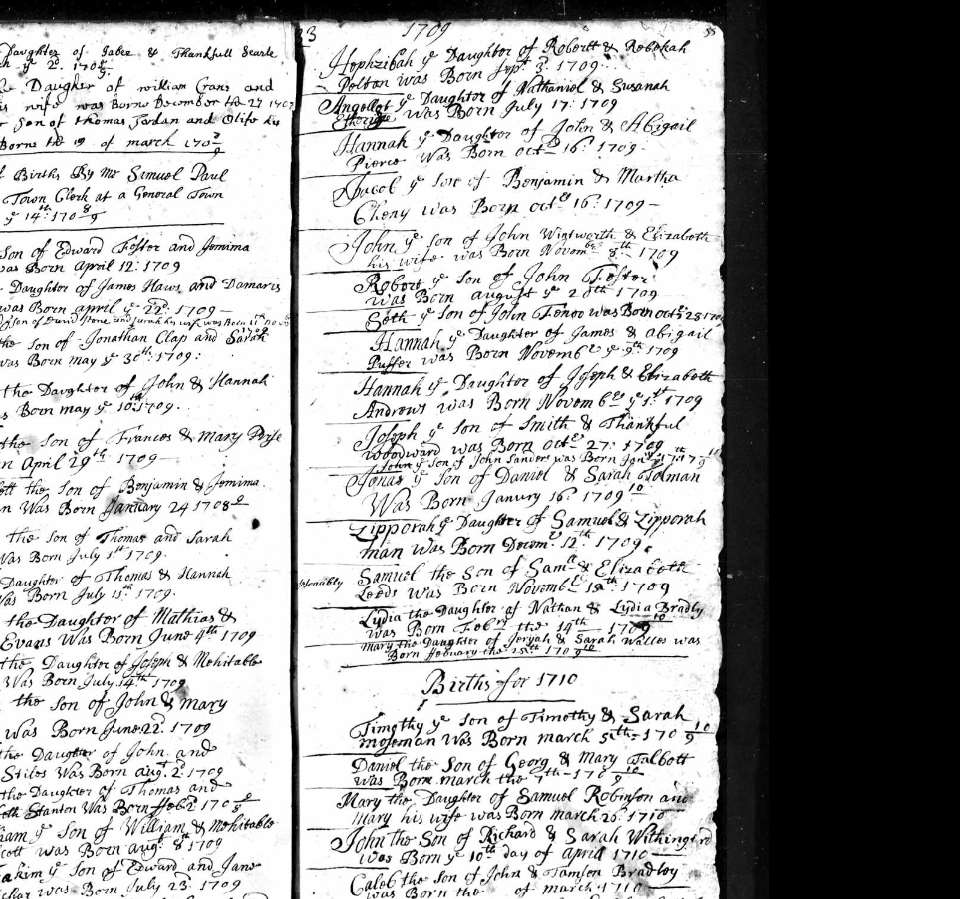 Daughter of Jabez & Thankfull Searle
ye 2d. 170 8/9
Daugher of william Crans and
his wife was Borne December the 27 170
Son of thomas Jordan and Olife his
Borne the 19 of march 170 8/9
Births By Mr Samuel Paul
Town Clerk at a General Town
ye 14th: 170 8/9
Son of Edward Foster and Jemima
was Born April 12: 1709
Daughter of James Haws and Damaris
was Born april ye 22d. 1709
Son of David Stone and Sarah his wife was Born 11th
the Son of Jonathan Clap and Sarah
was Born may ye 30th: 1709:
the Daughter of John & Hannah
Born may ye 10th 1709.
the Son of Frances & Mary
April 29th 1709
the Son of Benjamin & Jemima
Was Born January 24 1708 9
the Son of Thomas and Sarah
Was Born July 1st 1709.
Daughter of Thomas & Hannah
Was Born July 1709.
the Daughter of Mathias &
Evans Was Born June 4th 1709
the Daughter of Joseph & Mehitable
Was Born July 14th 1709
the Son of John & mary
was Born June 22 1709
the Daughter of John and
Stiles Was Born aug. 2. 1709
the Daughter of Thomas and
Stanton Was Born 170 8/9
ye Son of William & Mehitable
was Born augt 8th 1709
ye Son of Edward and Jane
was Born July 23. 1709
33
1709
Hephzibah ye Daughter of Robertt & Rebekah
Pelton was Born Sept. 3. 1709.
Angellet ye Daughter of Nathaniel & Susanah
was Born July 17: 1709
Hannah ye Daughter of John & Abigail
Pierce was Born octr 16. 1709
Jacob ye Son of Benjamin & Martha
Cheny was Born octer 16: 1709
John ye Son of John Wintworth & Elizabeth
his wife was Born Novembr 8th 1709
Robert ye Son of John Foster
was Born august ye 28th 1709
Seth ye Son of John Fenoo was Born octr 28 1709
Hannah ye Daughter of James & abigail
Puffer was Born Novembr ye 9th 1709
Hannah ye Daughter of Joseph & Elizabeth
Andrews was Born November ye 1st 1709
Joseph ye Son of Smith & Thankful
woodward was Born octer 27: 1709
John ye Son of John Sanders was Born 17 9/10
Jonas ye Son of Daniel & Sarah Tolman
Was Born Janury 16. 1709 10
Zipporah ye Daughter of Samuel & Zipporah
man was Born Decemr 12th. 1709.
Samuel the Son of Saml & Elizabeth
Leeds was Born Novembr 1709
Lydia the Daughter of Nathan & Lydia Bradly
was Born Febry the 14th 1709 10
Mary the Daughter of Jerijah & Sarah Walles was
Born ffebuary the 25th 170 9/10
Births for 1710
Timothy ye Son of Timothy & Sarah
moseman Was Born march 5th 170 10/9
Daniel the Son of Georg & Mary Talbott
was Born march the 7th 170 10/9
Mary the Daughter of Samuel Robinson and
Mary his wife was Born march 26. 1710
John the Son of Richard & Sarah Withingtrd
was Born ye 10th day of April 1710
Caleb the Son of John & Tamson Bradley
was Born the of march 1710